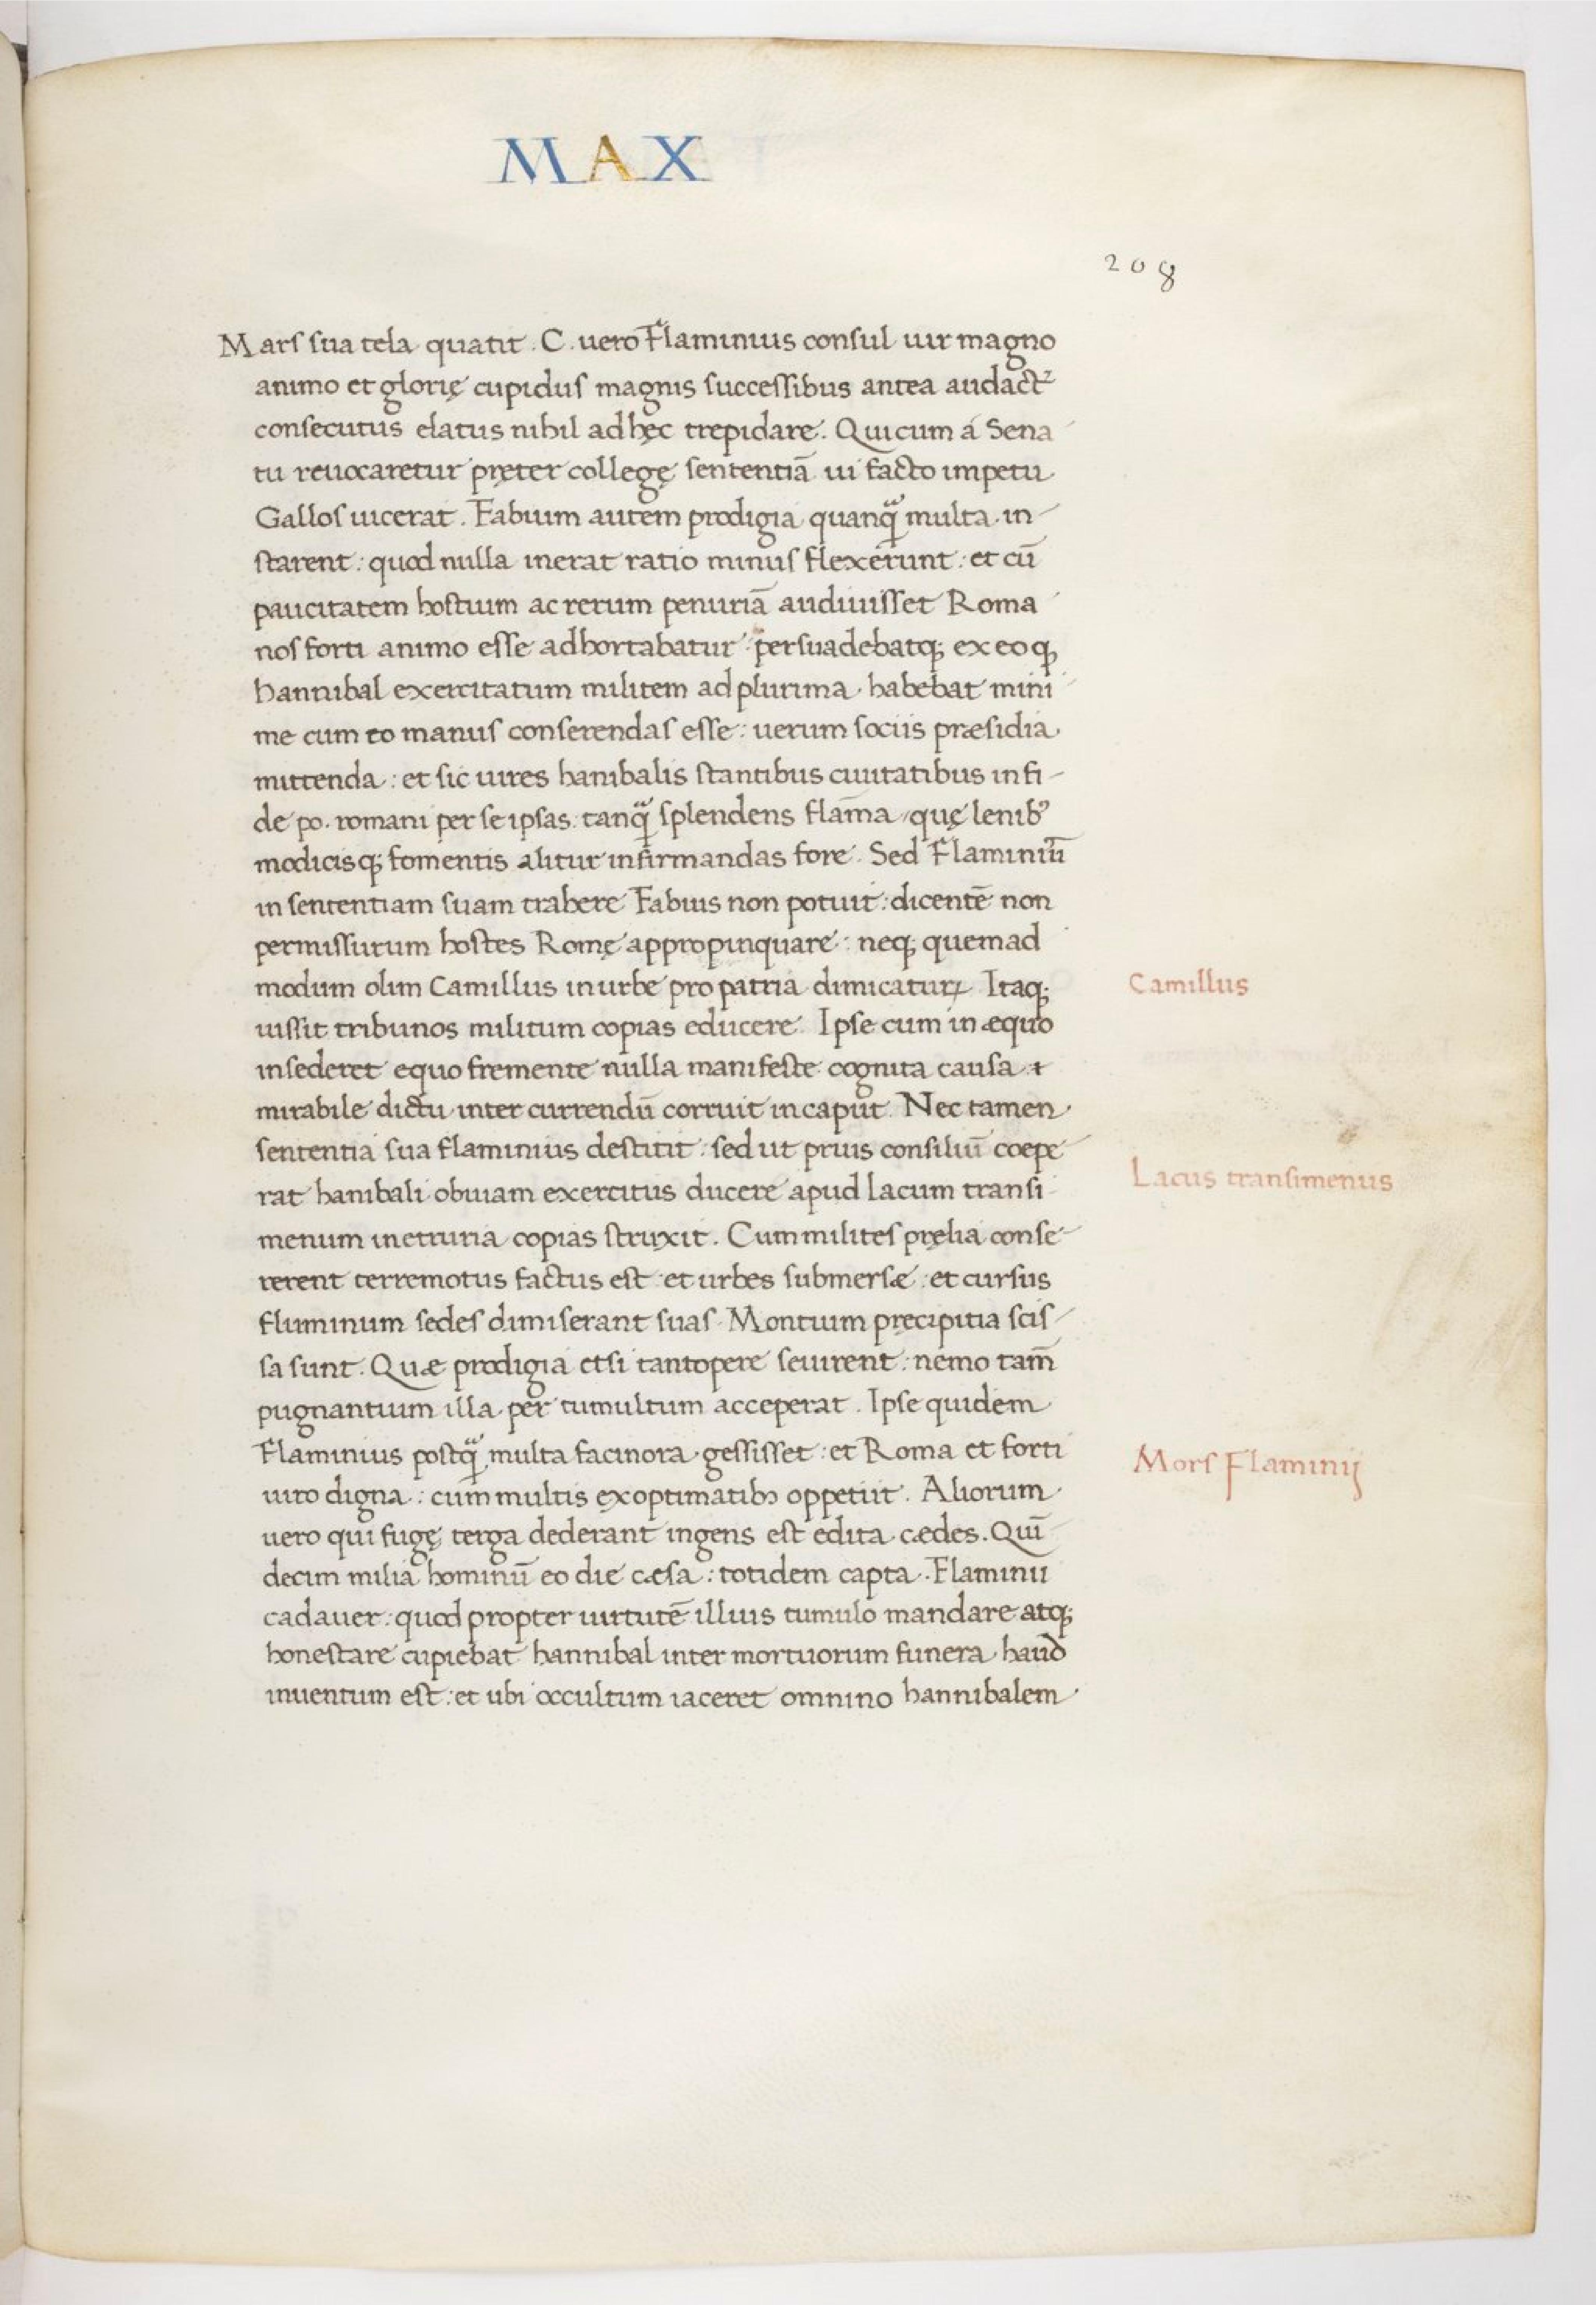 MAX
208
Mars sua tela quatit. C. uero Flaminius consul uir magno
animo et glorię cupidus magnis successibus antea audact᷑
consecutus elatus nihil ad hęc trepidare. Qui cum á Sena
tu reuocaretur pręter collegę sententiā ui facto impetu
Gallos uicerat. Fabium autem prodigia quanqͣ multa in-
starent: quod nulla inerat ratio minus flexerunt: et cū
paucitatem hostium ac rerum penuriā audiuisset Roma
nos forti animo esse adhortabatur persuadebatq; ex eo q
hannibal exercitatum militem ad plurima habebat mini
me cum eo manus conserendas esse: uerum sociis præsidia
mittenda: et sic uires hanibalis stantibus ciuitatibus in fi-
de po. romani per se ipsas: tanqͣ splendens flāma, quę lenibꝰ
modicisq; fomentis alitur infirmandas fore. Sed Flaminiū
in sententiam suam trahere Fabius non potuit: dicentē non
permissurum hostes Romę appropinquare: neq; quemad
modum olim Camillus in urbe pro patria dimicaturꝝ Itaq;
iussit tribunos militum copias educere. Ipse cum in æquo
insederet equo fremente nulla manifeste cognita causa &
mirabile dictu inter currendū corruit in caput. Nec tamen
sententia sua flaminius destitit: sed ut prius consiliū coepe
rat hanibali obuiam exercitus ducere apud lacum transi
menum in etruria copias struxit. Cum milites pręlia conse-
rerent terremotus factus est: et urbes submersæ: et cursus
fluminum sedes dimiserant suas. Montium pręcipitia scis
sa sunt. Quæ prodigia etsi tantopere seuirent: nemo tam̄
pugnantium illa per tumultum acceperat. Ipse quidem
Flaminius postqͣ multa facinora gessisset: et Roma et forti
uiro digna: cum multis ex optimatibꝫ oppetiit. Aliorum
uero qui fugę terga dederant ingens est edita cædes. Quī
decim milia hominū eo die cæsa: totidem capta. Flaminii
cadauer: quod propter uirtutē illius tumulo mandare atq;
honestare cupiebat hannibal inter mortuorum funera haud
inuentum est: et ubi occultum iaceret omnino hannibalem
Camillus
Lacus transimenus
Mors Flaminij